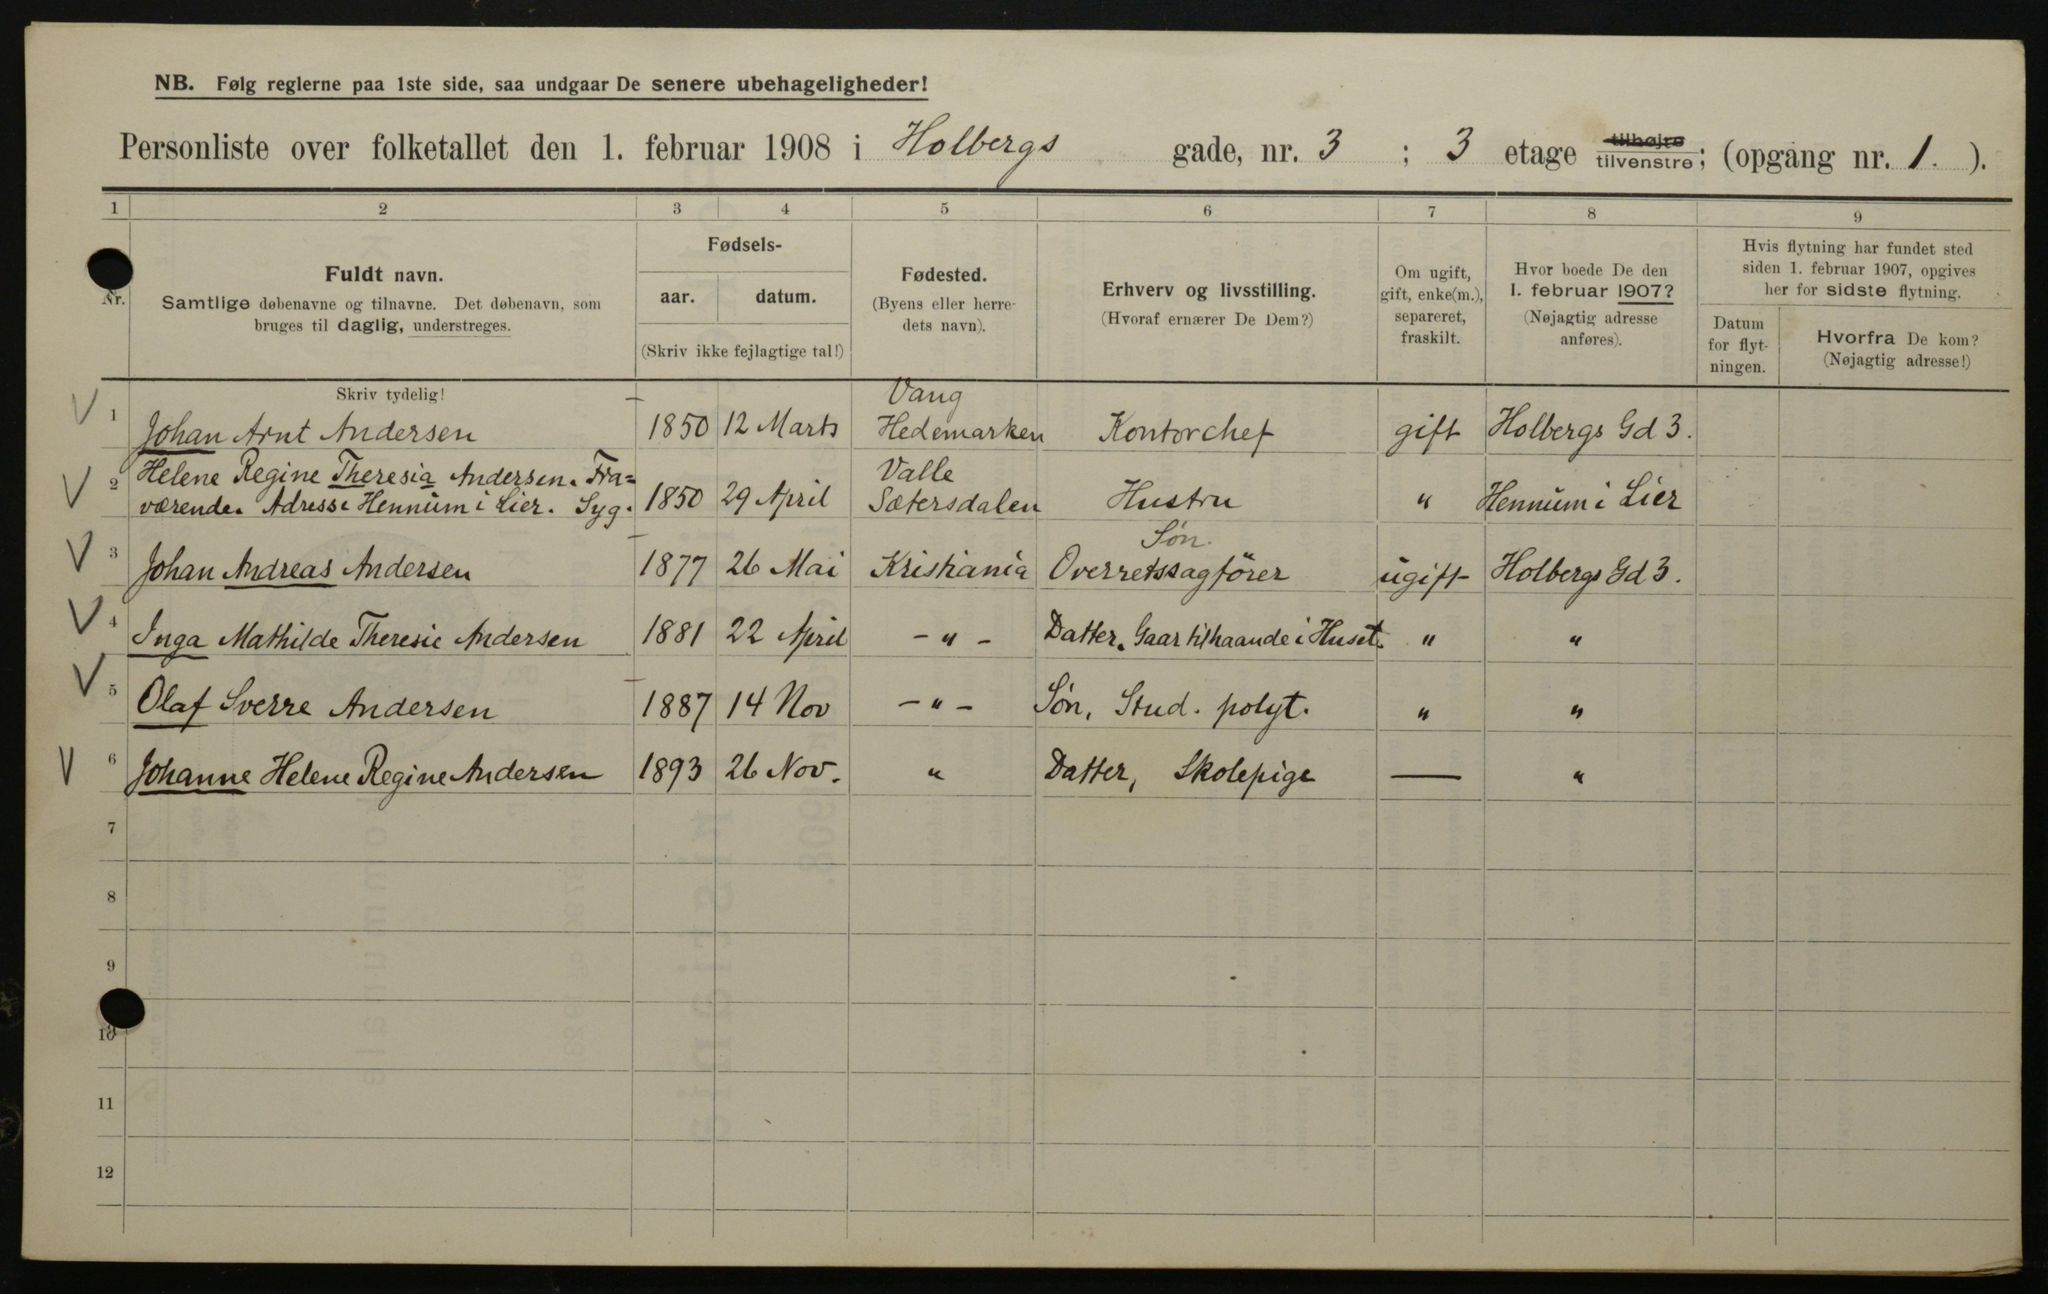 NB. Følg reglerne paa 1ste side, saa undgaar De senere ubehageligheder!
Personliste over folketallet den 1. februar 1908 i Holbergs gade, nr. 3 ; 3 etage tilhøjre tilvenstre; (opgang nr. 1. ).
1 2 3 4 5 6 7 8 9
Nr.
Fuldt navn.
Samtlige døbenavne og tilnavne. Det døbenavn, som
bruges til daglig, understreges.
Fødsels-
aar. datum.
(Skriv ikke fejlagtige tal!)
Fødested.
(Byens eller herre-
dets navn).
Erhverv og livsstilling.
(Hvoraf ernærer De Dem?)
Om ugift,
gift, enke(m.),
separeret,
fraskilt.
Hvor boede De den
1. februar 1907?
(Nøjagtig adresse
anføres).
Hvis flytning har fundet sted
siden 1. februar 1907, opgives
her for sidste flytning.
Datum
for flyt-
ningen.
Hvorfra De kom?
(Nøjagtig adresse!)
Skriv tydelig!
Vang
1 Johan Arnt Andersen 1850 12 Marts Hedemarken Kontorchef gift Holbergs Gd 3.
2 Helene Regine Theresia Andersen. Fra= Valle
værende. Adresse Hennum i Lier. Syg. 1850 29 April Sætersdalen Hustru " Hennum i Lier
Søn.
3 Johan Andreas Andersen 1877 26 Mai Kristiania Overretssagfører ugift Holbergs Gd 3.
4 Inga Mathilde Theresie Andersen 1881 22 April - " - Datter. Gaar tilhaande i Huset. " "
5 Olaf Sverre Andersen 1887 14 Nov - " - Søn, Stud. polyt. " "
6 Johanne Helene Regine Andersen 1893 26 Nov. " Datter, Skolepige — "
7
8
9
10
11
12